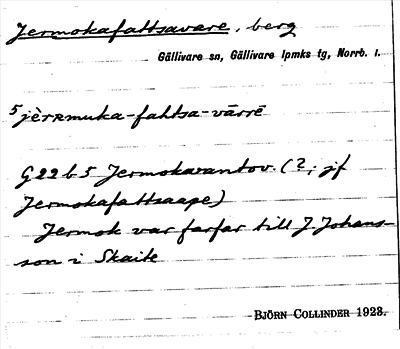 Jermokafattsavare, berg
Gällivare sn, Gällivare lpmks tg, Norrb. l.
5 jèrʀmuka-fahtsa-vārrē
G 22 b 5 Jermokavantov. (?; jf
Jermokafattsaape)
Jermok var farfar till J. Johans-
son i Skaite
BJÖRN COLLINDER 1923.